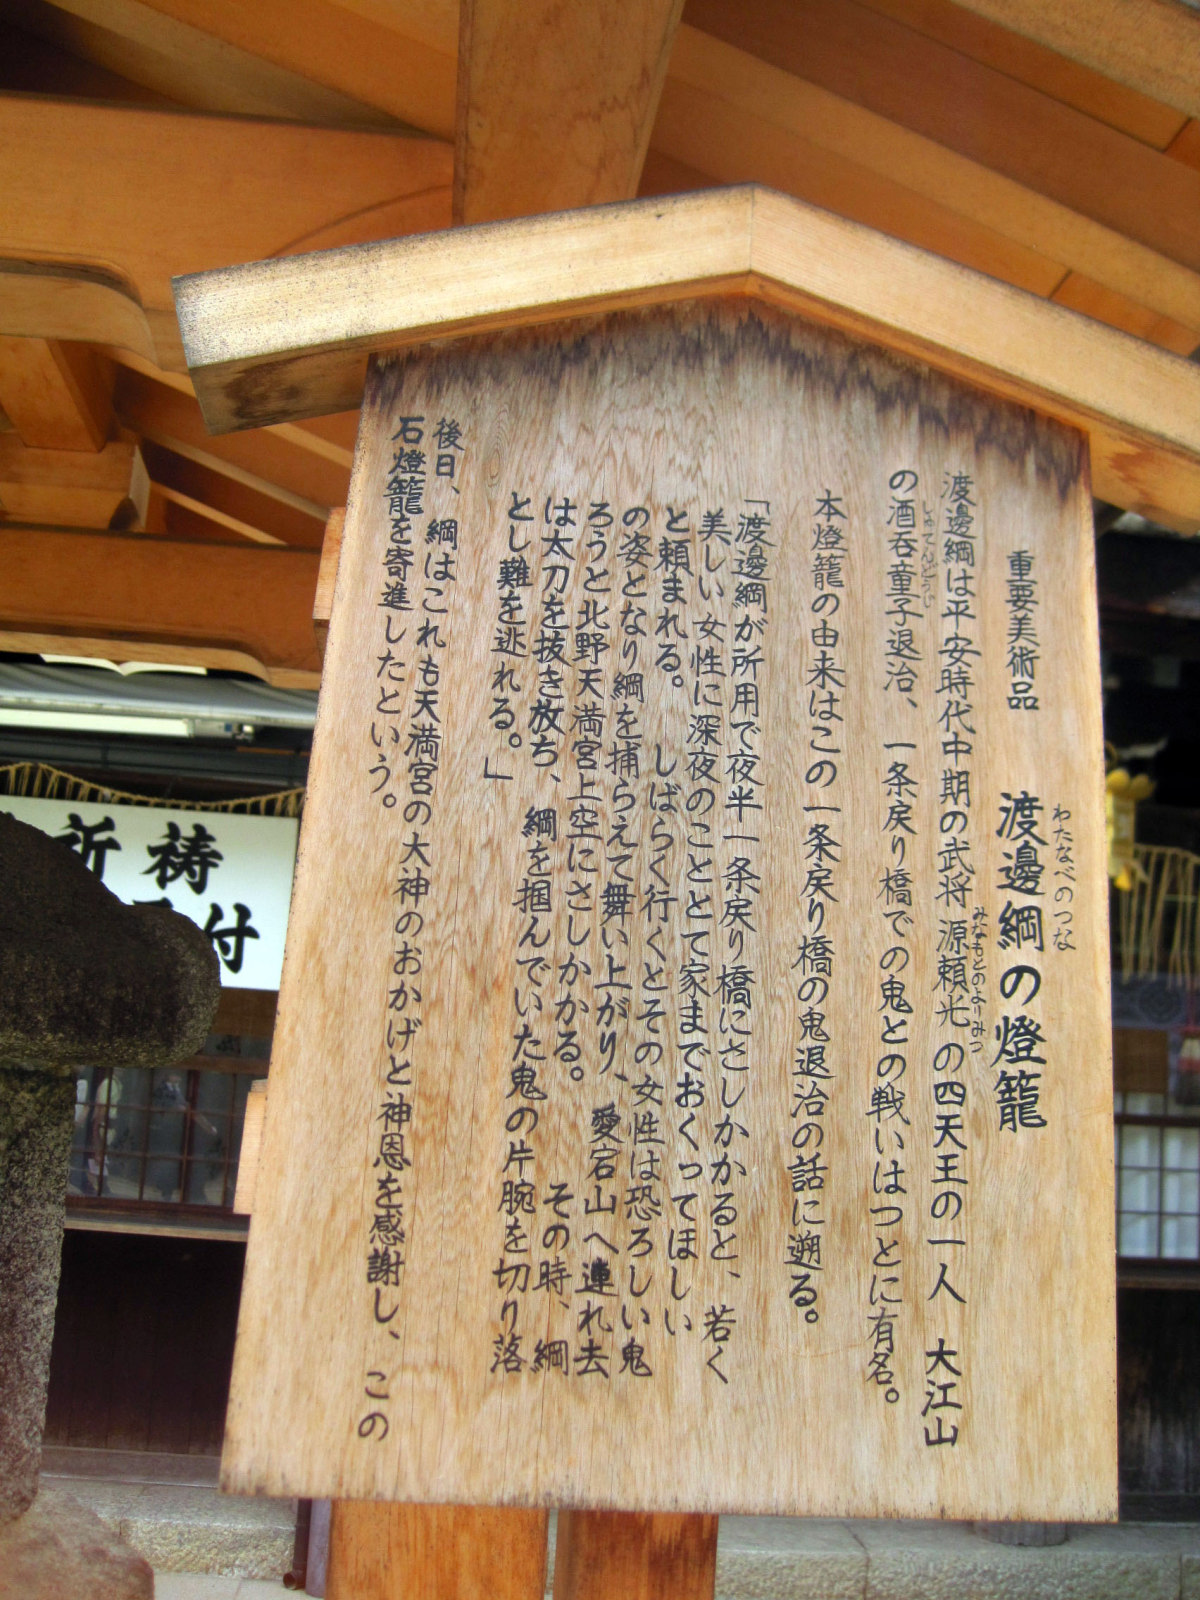 重要美術品 渡邊綱の燈籠
わたなべのつな
渡邊綱は平安時代中期の武将 源頼光の四天王の一人 大江山
みなもとのよりみつ
の酒呑童子退治、一条戻り橋での鬼との戦いはつとに有名。
しゅてんどうじ
本燈籠の由来はこの一条戻り橋の鬼退治の話に遡る。
「渡邊綱が所用で夜半一条戻り橋にさしかかると、若く
美しい女性に深夜のこととて家までおくってほしい
と頼まれる。しばらく行くとその女性は恐ろしい鬼
の姿となり綱を捕らえて舞い上がり、愛宕山へ連れ去
ろうと北野天満宮上空にさしかかる。その時、綱
は太刀を抜き放ち、綱を掴んでいた鬼の片腕を切り落
とし難を逃れる。」
後日、綱はこれも天満宮の大神のおかげと神恩を感謝し、この
石燈籠を寄進したという。
祈祷
付